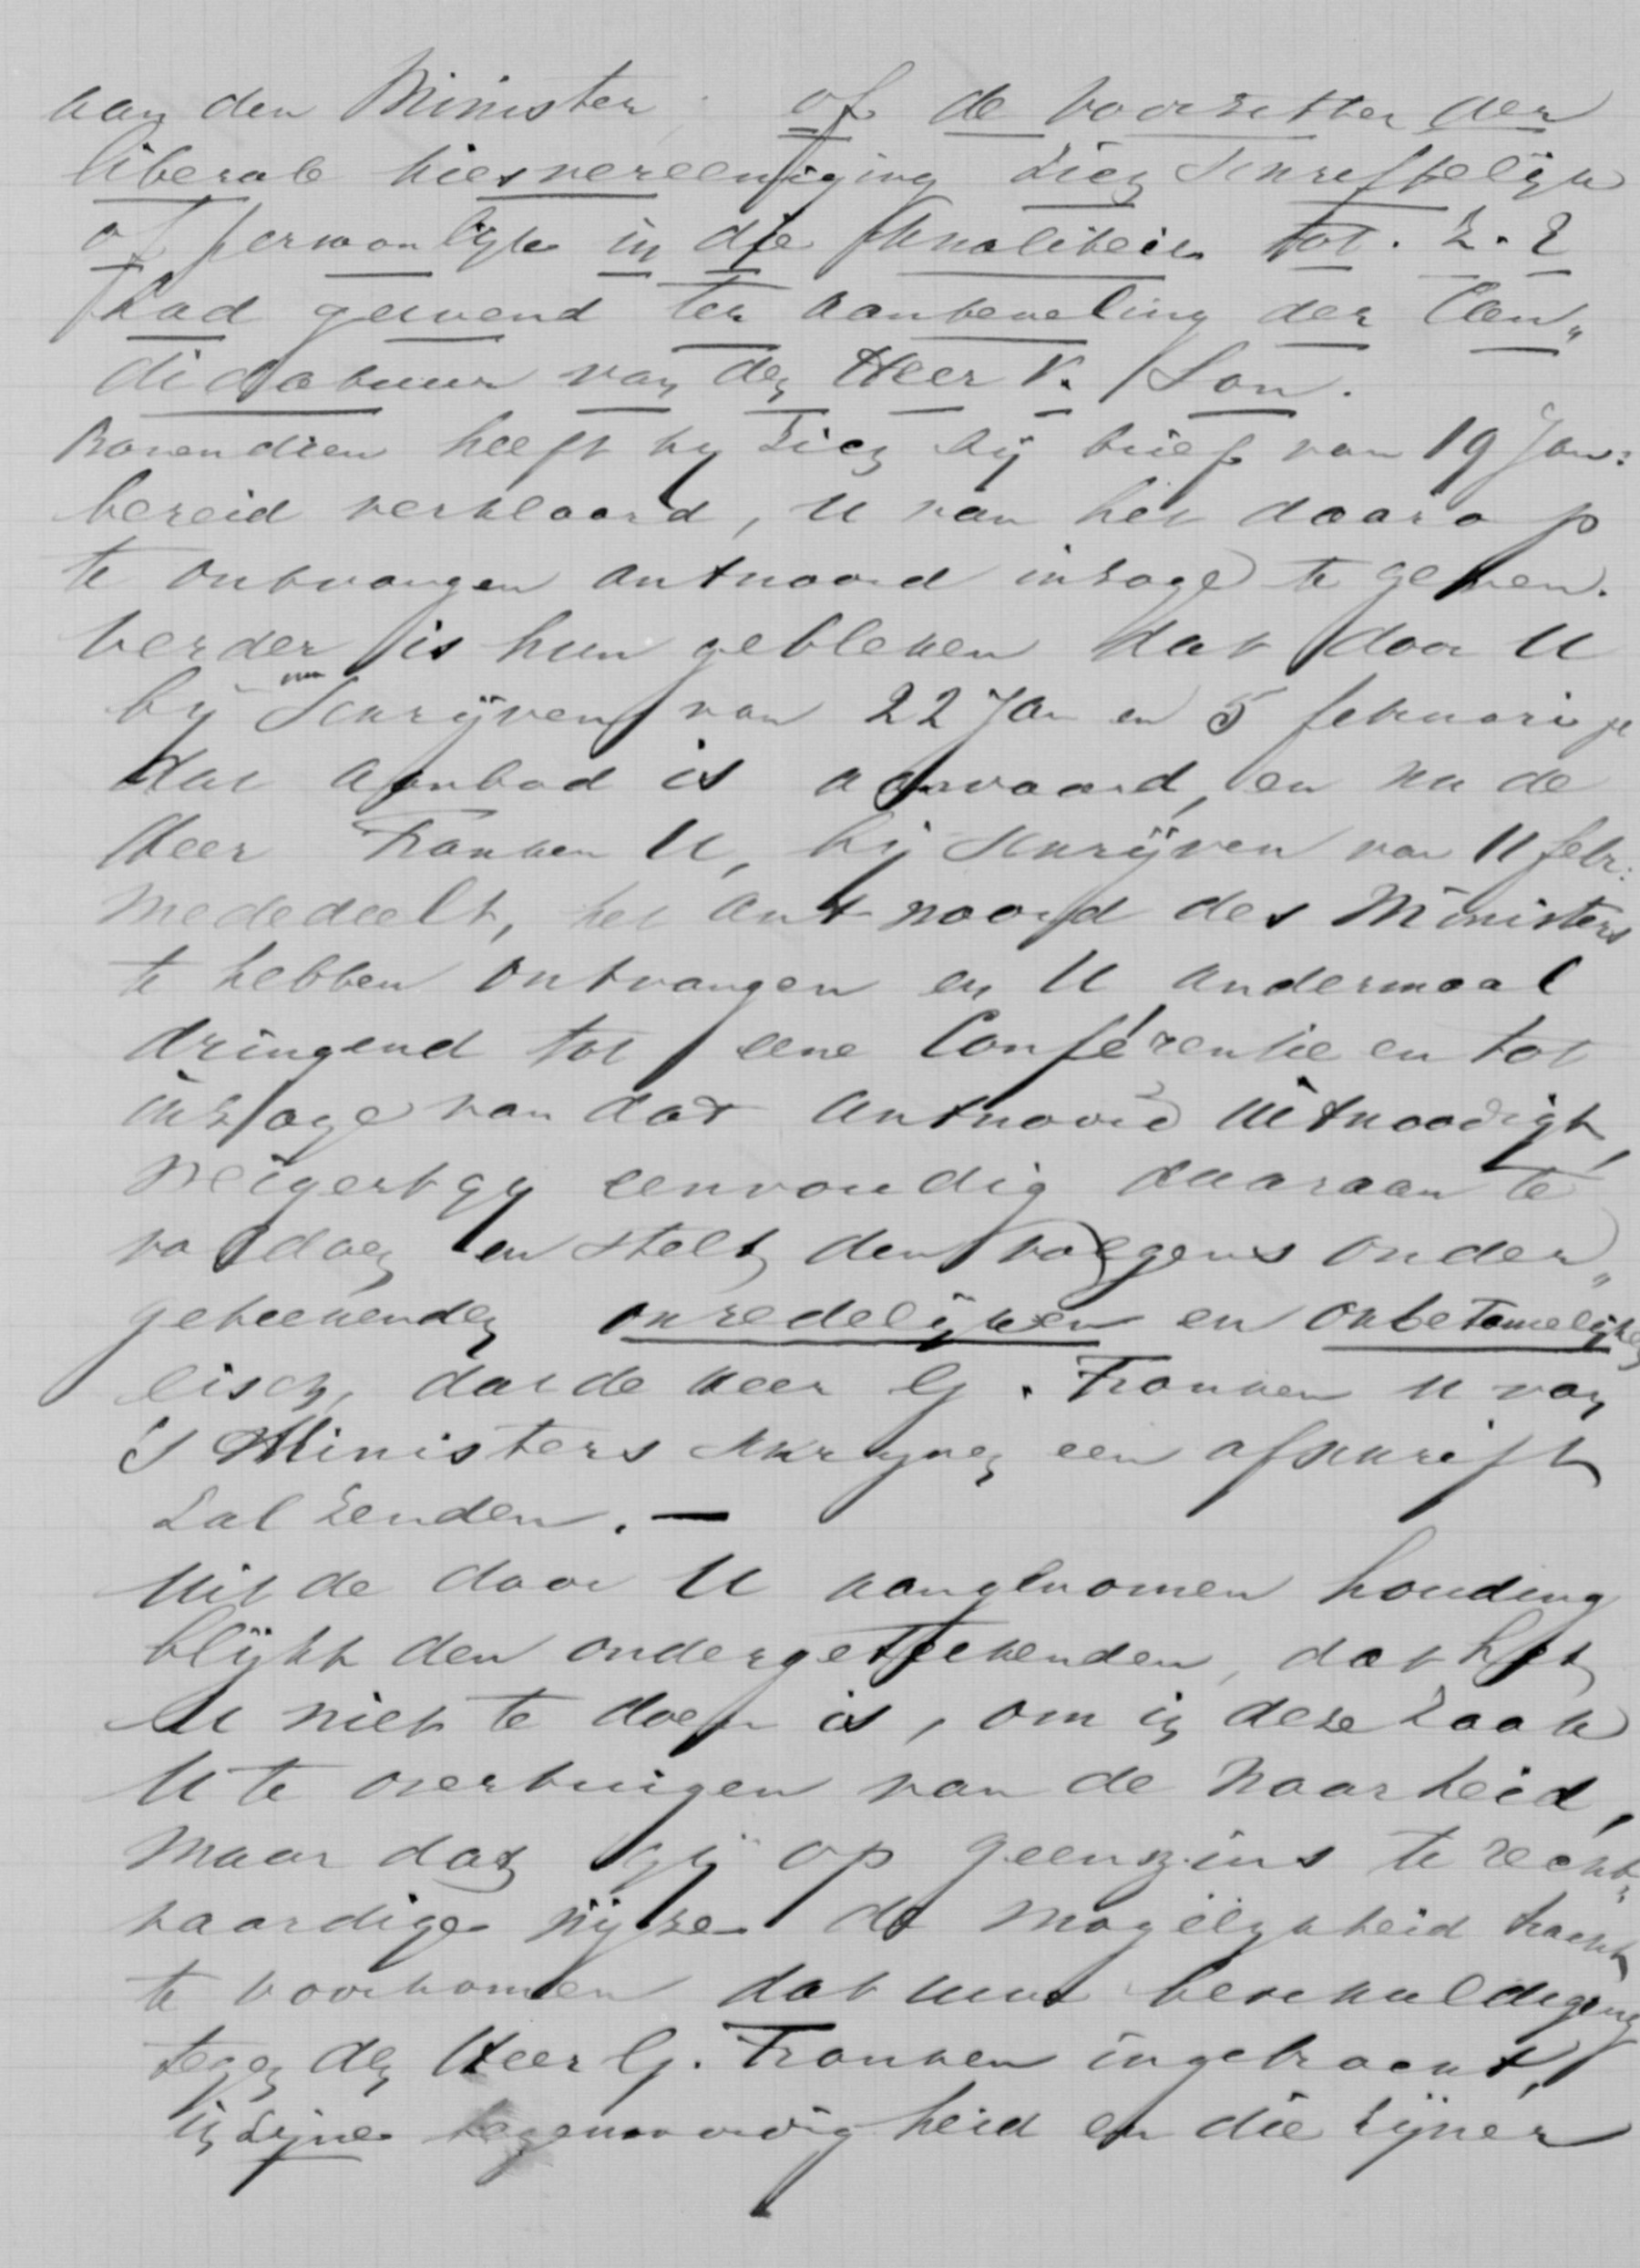 aan den Minister, of de voorzitter der
liberale kiesvereeniging zich schriftelijk
of persoonlijk in die kwaliteit tot Z. E
had gewend ter aanbeveling der Can„
didatuur van den Heer V. Son.
Bovendien heeft hij zich bij brief van 19 Jan:
bereid verklaard, U van het daarop
te ontvangen antwoord inzage te geven.
Verder is hun gebleken dat door U
bij schrijven van 22 Jan en 5 februari
dat aanbod is aanvaard, en nu de
Heer Franken U, bij schrijven van 11 febr:
mededeelt, het antwoord des Ministers
te hebben ontvangen en U andermaal
dringend tot eene Conférentie en tot
inzage van dat antwoord uitnoodigt,
weigert gij eenvoudig daaraan te
voldoen en stelt den volgens onder„
geteekenden onredelijken en onbetamelijken
eisch, dat de heer G. Franken U van
's Ministers schrijven een afschrift
zal zenden. —
Uit de door U aangenomen houding
blijkt den ondergeteekenden, dat het
U niet te doen is, om in deze zaak
U te overtuigen van de waarheid,
maar dat gij op geenszins te recht„
vaardige wijze de mogelijkheid tracht
te voorkomen dat uwe beschuldiging
tegen den Heer G. Franken ingebracht,
in zijne tegenwoordigheid en die zijner